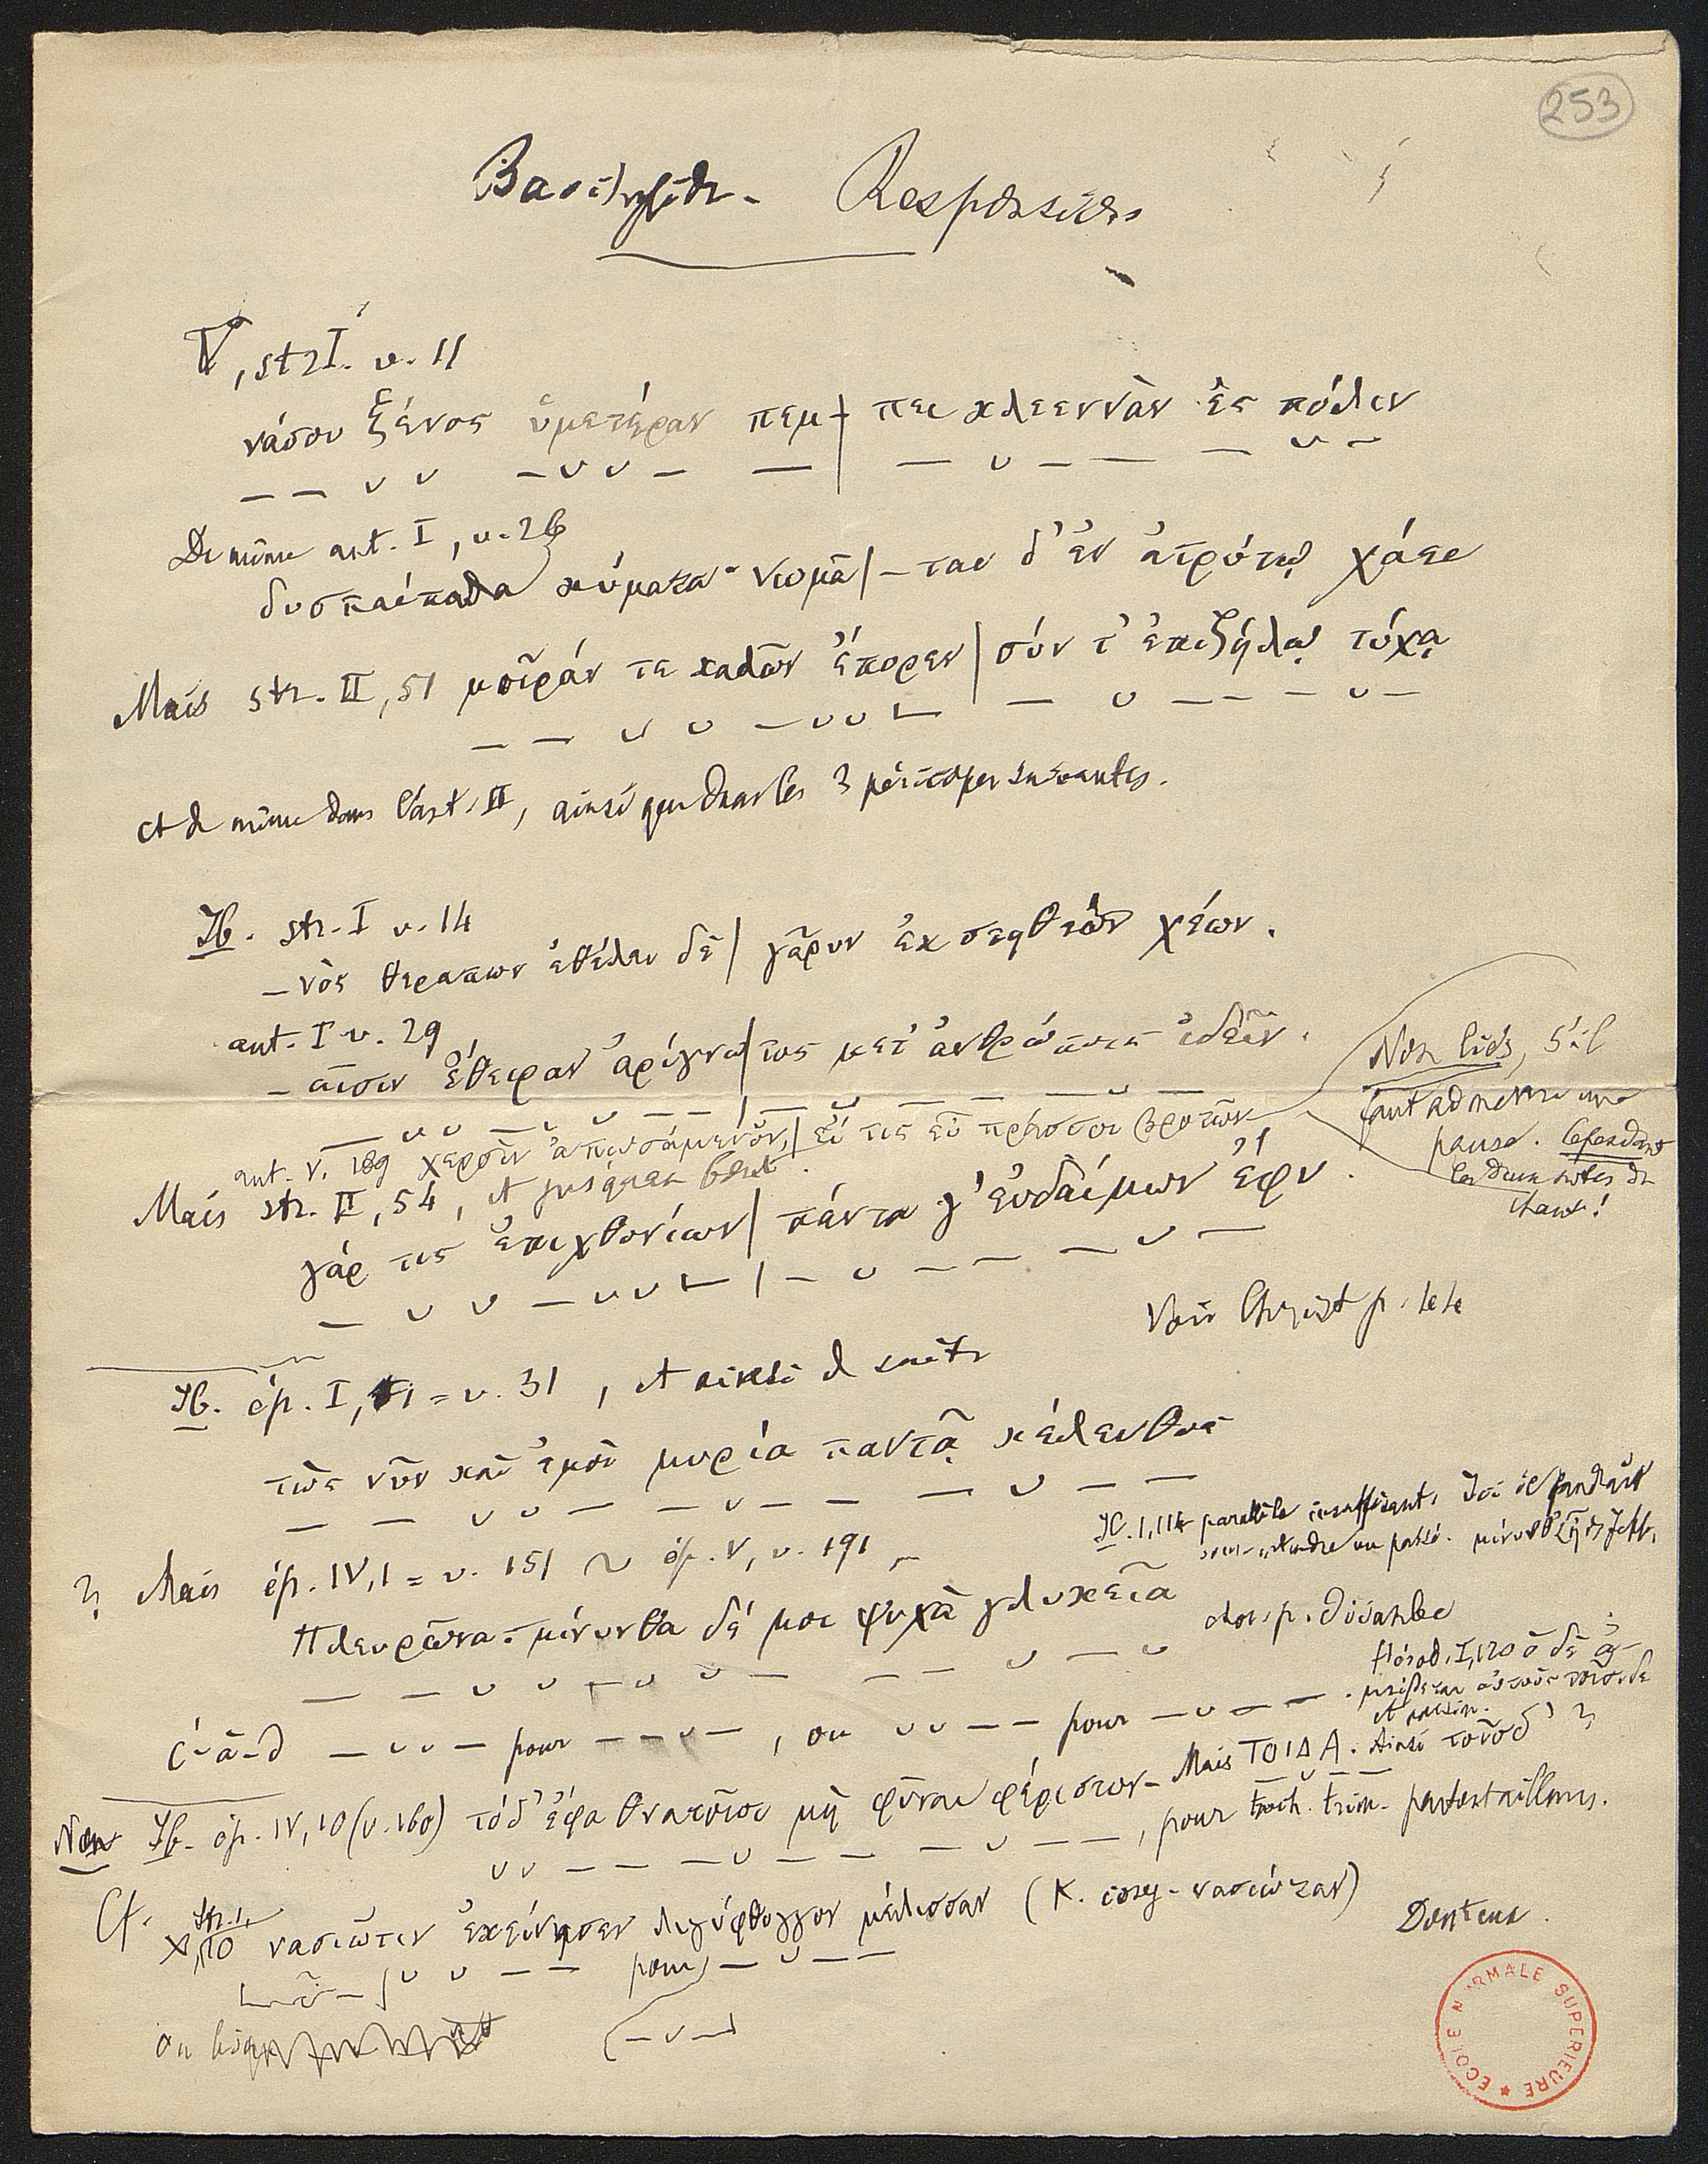 253
Bacchylide - Responsions
V, str I. v. 11
νάσου ξένος ὑμετέραν πεμ- | πει κλεεννὰν ἐς πόλιν
— — ∪ ∪ — ∪ ∪ — — | — ∪ — — — ∪ —
De même ant. I, v. 26
δυσπαίπαλα κύματα· νωμᾶ | -ται δ' ἐν ἀτρύτῳ χάει
Mais str. II, 51 μοῖράν τε καλῶν ἔπορεν | σύν τ' ἐπιζήλῳ τύχᾳ
— — ∪ ∪ — ∪ ∪ — | — ∪ — — — ∪ —
et de même dans l'ant. II, ainsi que dans les 3 péricopes suivantes.
Ib. str. I v. 14
-νὸς θεράπων ἐθέλει δὲ | γᾶρυν ἐκ στηθέων χέων.
ant. I v. 29
-αισιν ἔθειραν ἀρίγνω | τος μετ' ἀνθρώποις ἰδεῖν.
— ∪ ∪ — ∪ ∪ — — | — ∪ — — — ∪ —
ant. V. 189 χερσὶν ἀπωσάμενον, | εἴ τις εὖ πράσσοι βροτῶν
Non liés, s'il
faut admettre une
pause. Cependant
les deux notes de
chant!
Mais str. II, 54, et jusqu'au bout.
γάρ τις ἐπιχθονίων | πάντα γ' εὐδαίμων ἔφυ.
— ∪ ∪ — ∪ ∪ — | — ∪ — — — ∪ —
Voir Christ p.
Ib. ép. I, 1 = v. 31, et ainsi de suite
τὼς νῦν καὶ ἐμοὶ μυρία παντᾷ κέλευθος
— — ∪ ∪ — — ∪ — — — ∪ — —
Ib. 1, 114 parallèle insuffisant. Ici il faudrait
? Mais ép. IV, 1 = v. 151 ~ ép. V, v. 191
Πλευρῶνα· μίνυνθα δέ μοι ψυχὰ γλυκεῖα
— — ∪ ∪ — ∪ ∪ — — — ∪ — ∪
chor. p. diiambe
c'-à-d — ∪ ∪ — pour — — ∪ —, ou ∪ ∪ — — pour — ∪ — —.
Hérod. I, 120 ὁ δὲ ἀ-
μείβεται αὐτοὺς τοῖσιδε
et passim.
Non Ib. ép. IV, 10 (v. 160) τόδ' ἔφα θνατοῖσι μὴ φῦναι φέριστον - Mais ΤΟΙΔΑ. Ainsi τοῖσδ' ?
∪ ∪ — — — ∪ — — — ∪ — —, pour — ∪ — — troch. trim.
Cf. X, str. 1, 10 νασιῶτιν ἐκείνησεν λιγύφθογγον μέλισσαν (K. νασιώταν)
Douteux.
∪ ∪ — — pour — ∪ — —
ou bien
(— ∪ —)
ECOLE NORMALE SUPERIEURE